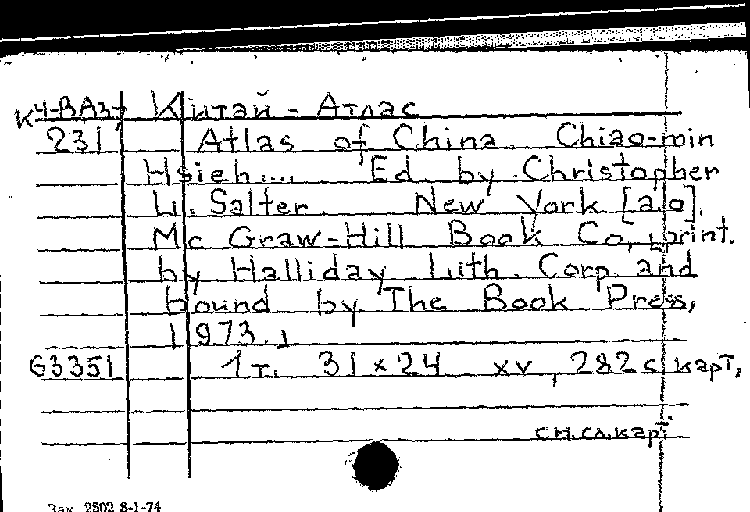 К4-ВАз7 Китай - Атлас
231 Atlas of China Chiao-min
Hsieh.... Ed. by Christopher
L. Salter New York [a.o].
Mc Graw-Hill Book Co, print.
by Halliday Lith. Corp. and
bound by The Book Press,
1973.
63351 1т. 31 x 24 xv, 282 с. карт,
см.сл.карт
Зак. 2502 8-1-74